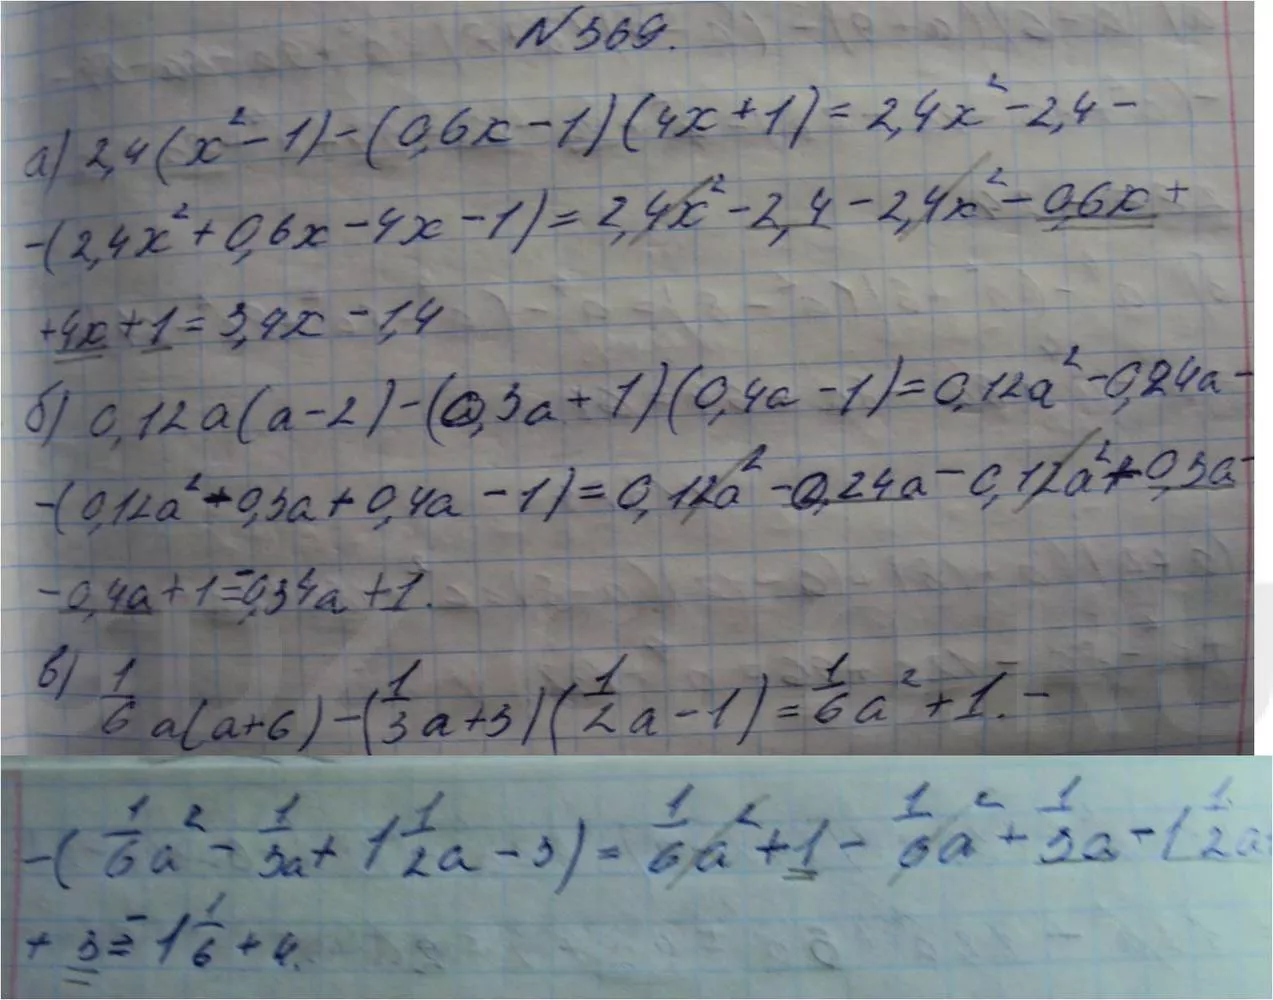 N 369.
а) 2,4(x² - 1) - (0,6x - 1)(4x + 1) = 2,4x² - 2,4 -
-(2,4x² + 0,6x - 4x - 1) = 2,4x² - 2,4 - 2,4x² - 0,6x +
+4x + 1 = 3,4x - 1,4
б) 0,12a(a - 2) - (0,3a + 1)(0,4a - 1) = 0,12a² - 0,24a -
-(0,12a² - 0,3a + 0,4a - 1) = 0,12a² - 0,24a - 0,12a² + 0,3a -
-0,4a + 1 = -0,34a + 1.
в) 1/6 a(a + 6) - (1/3 a + 3)(1/2 a - 1) = 1/6 a² + 1. -
-(1/6 a² - 1/3 a + 1 1/2 a - 3) = 1/6 a² + 1 - 1/6 a² + 1/3 a - 1 1/2 a
+ 3 = -1 1/6 + 4.